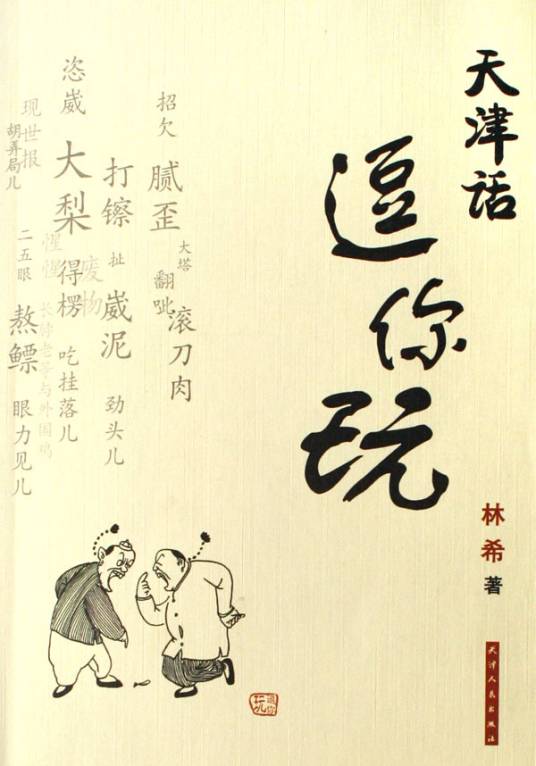 天津话
逗你玩
林希 著
天津人民出版社
招欠
腻歪
大塔
翻呲
滚刀肉
打镲
扯
崴泥
劲头儿
恣崴
大梨
得楞
吃挂落儿
废物
惺惺
现世报
胡弄局儿
二五眼
熬鳔
眼力见儿